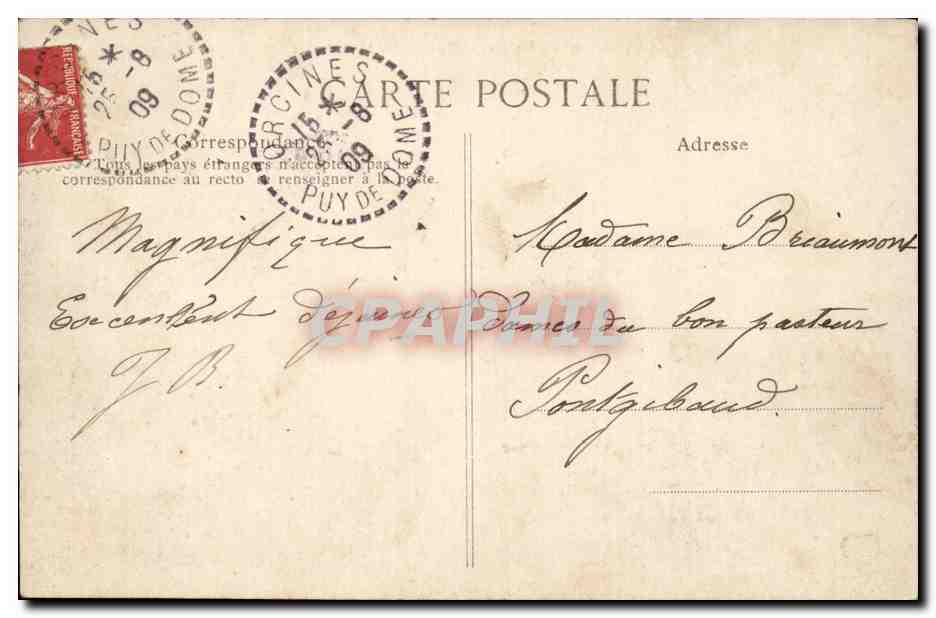 CARTE POSTALE
Correspondance
Tous les pays étrangers n'acceptent pas la
correspondance au recto se renseigner à la poste.
Adresse
RÉPUBLIQUE FRANÇAISE
NES
15 *
25 -8
09
PUY DE DOME
ORCINES
15 *
25 -8
09
PUY DE DOME
Magnifique
Excellent déjeuner
J B.
Madame Briaumont
Dames du bon pasteur
Pontgibaud.
CPAPHIL